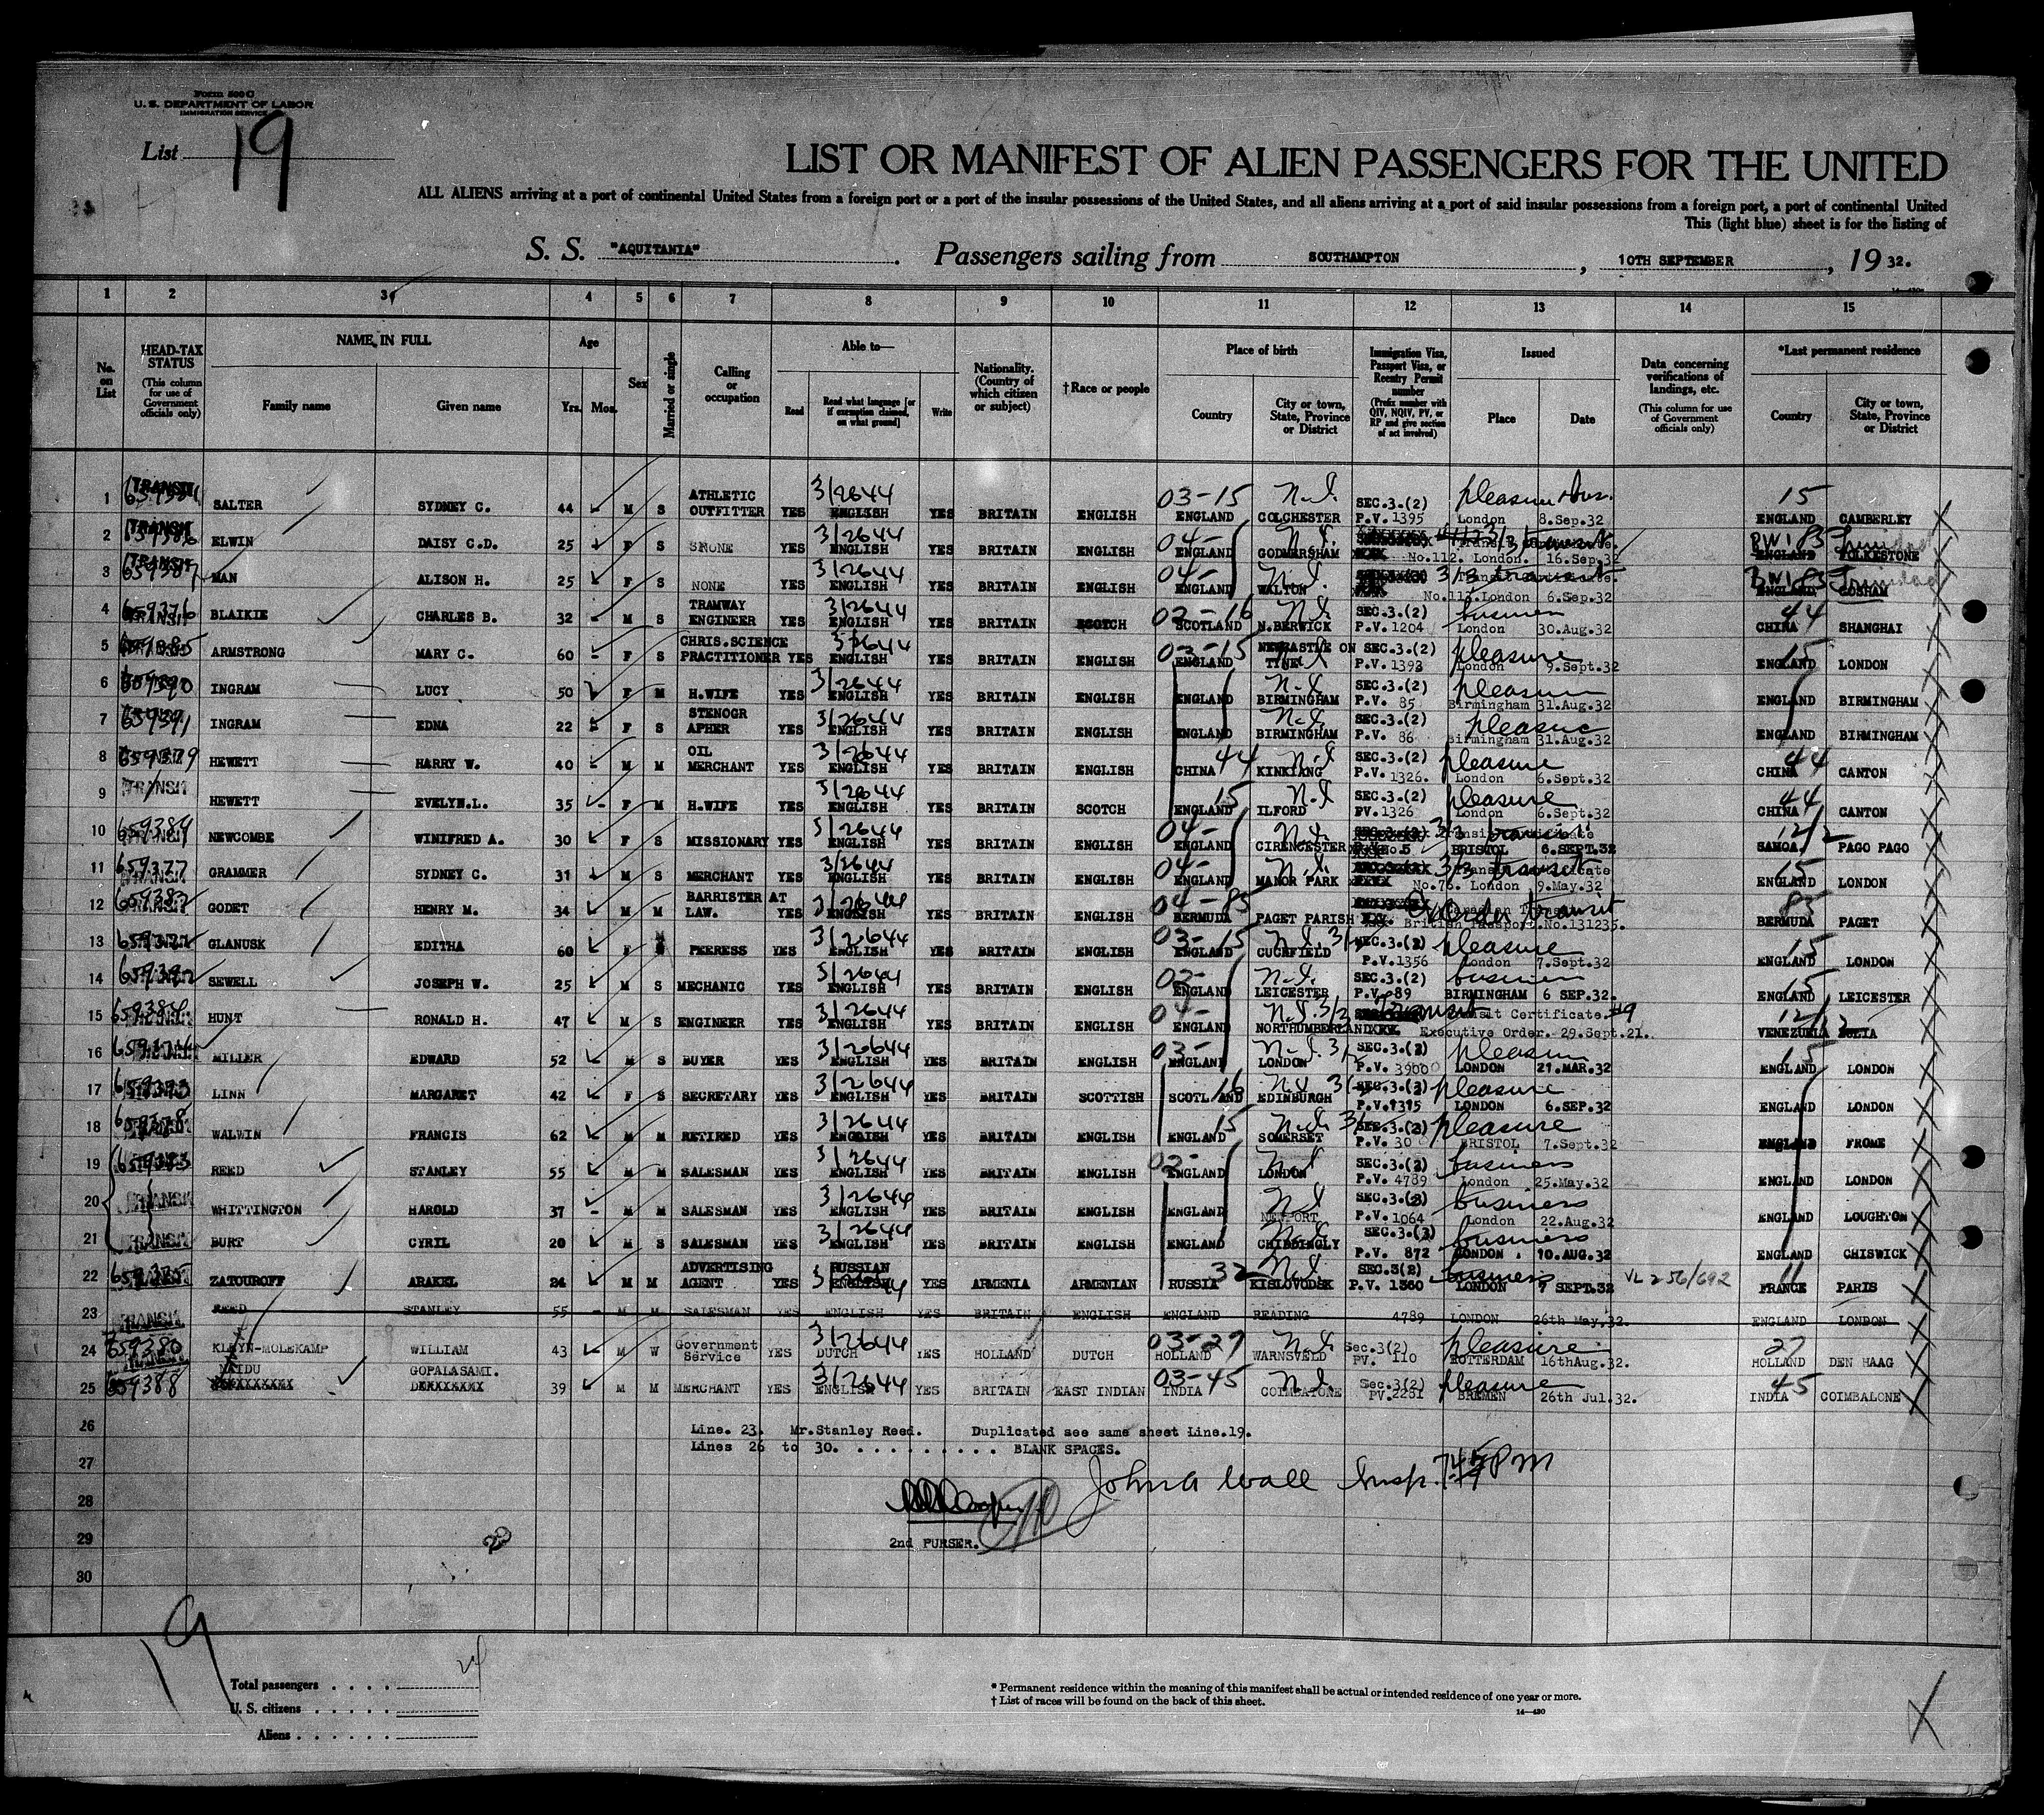 Form 500 C
U. S. DEPARTMENT OF LABOR
IMMIGRATION SERVICE
List 19
LIST OR MANIFEST OF ALIEN PASSENGERS FOR THE UNITED
ALL ALIENS arriving at a port of continental United States from a foreign port or a port of the insular possessions of the United States, and all aliens arriving at a port of said insular possessions from a foreign port, a port of continental United
This (light blue) sheet is for the listing of
S. S. "AQUITANIA" . Passengers sailing from SOUTHAMPTON , 10TH SEPTEMBER , 19 32.
1 2 3 4 5 6 7 8 9 10 11 12 13 14 15
No. on List
HEAD-TAX STATUS (This column for use of Government officials only)
NAME IN FULL
Family name Given name
Age
Yrs. Mos.
Sex
Married or single
Calling or occupation
Able to—
Read Read what language [or if exemption claimed, on what ground] Write
Nationality. (Country of which citizen or subject)
†Race or people
Place of birth
Country City or town, State, Province or District
Immigration Visa, Passport Visa, or Reentry Permit number (Prefix number with QIV, NQIV, PV, or RP and give section of act involved)
Issued
Place Date
Data concerning verifications of landings, etc. (This column for use of Government officials only)
*Last permanent residence
Country City or town, State, Province or District
1 SALTER SYDNEY C. 44 M S ATHLETIC OUTFITTER YES ENGLISH YES BRITAIN ENGLISH 03-15 ENGLAND COLCHESTER SEC.3.(2) P.V. 1395 pleasure London 8.Sep.32 15 ENGLAND CAMBERLEY
2 ELWIN DAISY C.D. 25 F S NONE YES ENGLISH YES BRITAIN ENGLISH 04- ENGLAND GODMERSHAM No.112. London. 16.Sep.32 ENGLAND FOLKESTONE
3 659387 MAN ALISON H. 25 F S NONE YES ENGLISH YES BRITAIN ENGLISH 04- ENGLAND WALTON No.113.London 6.Sep.32 ENGLAND COSHAM
4 659376 BLAIKIE CHARLES B. 32 M S TRAMWAY ENGINEER YES ENGLISH YES BRITAIN SCOTCH SCOTLAND N.BERWICK SEC.3.(2) P.V. 1204 business London 30.Aug.32 44 CHINA SHANGHAI
5 ARMSTRONG MARY C. 60 - F S CHRIS.SCIENCE PRACTITIONER YES ENGLISH YES BRITAIN ENGLISH 03-15 ENGLAND NEWCASTLE ON TYNE SEC.3.(2) P.V. 1392 pleasure London 9.Sept.32 15 ENGLAND LONDON
6 659390 INGRAM LUCY 50 F M H.WIFE YES ENGLISH YES BRITAIN ENGLISH ENGLAND BIRMINGHAM SEC.3.(2) P.V. 85 pleasure Birmingham 31.Aug.32 ENGLAND BIRMINGHAM
7 659391 INGRAM EDNA 22 F S STENOGR APHER YES ENGLISH YES BRITAIN ENGLISH ENGLAND BIRMINGHAM SEC.3.(2) P.V. 86 pleasure Birmingham 31.Aug.32 ENGLAND BIRMINGHAM
8 659379 HEWETT HARRY W. 40 M M OIL MERCHANT YES ENGLISH YES BRITAIN ENGLISH CHINA 44 KINKIANG SEC.3.(2) P.V. 1326. pleasure London 6.Sept.32 CHINA 44 CANTON
9 TRANSIT HEWETT EVELYN.L. 35 - F M H.WIFE YES ENGLISH YES BRITAIN SCOTCH ENGLAND 15 ILFORD SEC.3.(2) PV.1326 pleasure London 6.Sept.32 44 CHINA CANTON
10 659389 NEWCOMBE WINIFRED A. 30 F S MISSIONARY YES ENGLISH YES BRITAIN ENGLISH 04- ENGLAND CIRENCESTER No.5 BRISTOL 6.SEPT.32 SAMOA. PAGO PAGO
11 659377 GRAMMER SYDNEY C. 31 M S MERCHANT YES ENGLISH YES BRITAIN ENGLISH 04- ENGLAND MANOR PARK 3/3 transit No.76. London 9.May.32 15 ENGLAND LONDON
12 659382 GODET HENRY M. 34 M M BARRISTER AT LAW. YES ENGLISH YES BRITAIN ENGLISH 04-85 BERMUDA PAGET PARISH British Passport.No.131235. 85 BERMUDA PAGET
13 GLANUSK EDITHA 60 F PEERESS YES ENGLISH YES BRITAIN ENGLISH 03-15 ENGLAND CUCKFIELD SEC.3.(2) P.V.1356 pleasure London 7.Sept.32 15 ENGLAND LONDON
14 659392 SEWELL JOSEPH W. 25 M S MECHANIC YES ENGLISH YES BRITAIN ENGLISH 03- ENGLAND LEICESTER SEC.3.(2) P.V. 89 business BIRMINGHAM 6 SEP.32. 15 ENGLAND LEICESTER
15 HUNT RONALD H. 47 M S ENGINEER YES ENGLISH YES BRITAIN ENGLISH 04- ENGLAND NORTHUMBERLAND Transit Certificate. #9 Executive Order. 29.Sept.21. VENEZUELA
16 MILLER EDWARD 52 M S BUYER YES ENGLISH YES BRITAIN ENGLISH 03- ENGLAND LONDON SEC.3.(2) P.V. 3900 pleasure LONDON 21.MAR.32 15 ENGLAND LONDON
17 659393 LINN MARGARET 42 F S SECRETARY YES ENGLISH YES BRITAIN SCOTTISH SCOTLAND 16 EDINBURGH SEC.3.(2) P.V.1315 pleasure LONDON 6.SEP.32 ENGLAND LONDON
18 659378 WALWIN FRANCIS 62 M M RETIRED YES ENGLISH YES BRITAIN ENGLISH 15 ENGLAND SOMERSET SEC.3.(2) P.V. 30 pleasure BRISTOL 7.Sept.32 ENGLAND FROME
19 659383 REED STANLEY 55 M M SALESMAN YES ENGLISH YES BRITAIN ENGLISH 03- ENGLAND LONDON SEC.3.(2) P.V. 4789 business London 25.May.32 ENGLAND LONDON
20 TRANSIT WHITTINGTON HAROLD 37 - M M SALESMAN YES ENGLISH YES BRITAIN ENGLISH ENGLAND NEWPORT SEC.3.(2) P.V. 1064 business London 22.Aug.32 ENGLAND LOUGHTON
21 TRANSIT BURT CYRIL 20 M S SALESMAN YES ENGLISH YES BRITAIN ENGLISH ENGLAND CHIDDINGLY SEC.3.(2) P.V. 872 business LONDON. 10.AUG.32 ENGLAND CHISWICK
22 659375 ZATOUROFF ARAKEL M M ADVERTISING AGENT YES RUSSIAN ENGLISH YES ARMENIA ARMENIAN RUSSIA 32 KISLOVODSK SEC.3(2) P.V. 1360 business LONDON 7 SEPT.32 VL 256/692 FRANCE PARIS
23 TRANSIT REED STANLEY 55 - M M SALESMAN YES ENGLISH YES BRITAIN ENGLISH ENGLAND READING 4789 LONDON 26th May,32. ENGLAND LONDON
24 659380 KLEYN-MOLEKAMP WILLIAM 43 M W Government Service YES DUTCH YES HOLLAND DUTCH 03-27 HOLLAND WARNSVELD Sec.3(2) PV. 110 pleasure ROTTERDAM 16thAug.32. 27 HOLLAND DEN HAAG
25 659388 NAIDU GOPALASAMI. 39 M M MERCHANT YES ENGLISH YES BRITAIN EAST INDIAN 03-45 INDIA Sec.3(2) PV.2251 pleasure BREMEN 26th Jul.32. 45 INDIA COIMBALONE
26 Line. 23. Mr.Stanley Reed. Duplicated see same sheet Line.19.
Lines 26 to 30. . . . . . . . . . BLANK SPACES.
27 John A Wall Insp. 745 PM
28
29 2nd PURSER.
30
19
Total passengers . . . . 24
U. S. citizens . . . . .
Aliens . . . . . .
* Permanent residence within the meaning of this manifest shall be actual or intended residence of one year or more.
† List of races will be found on the back of this sheet.
14—430